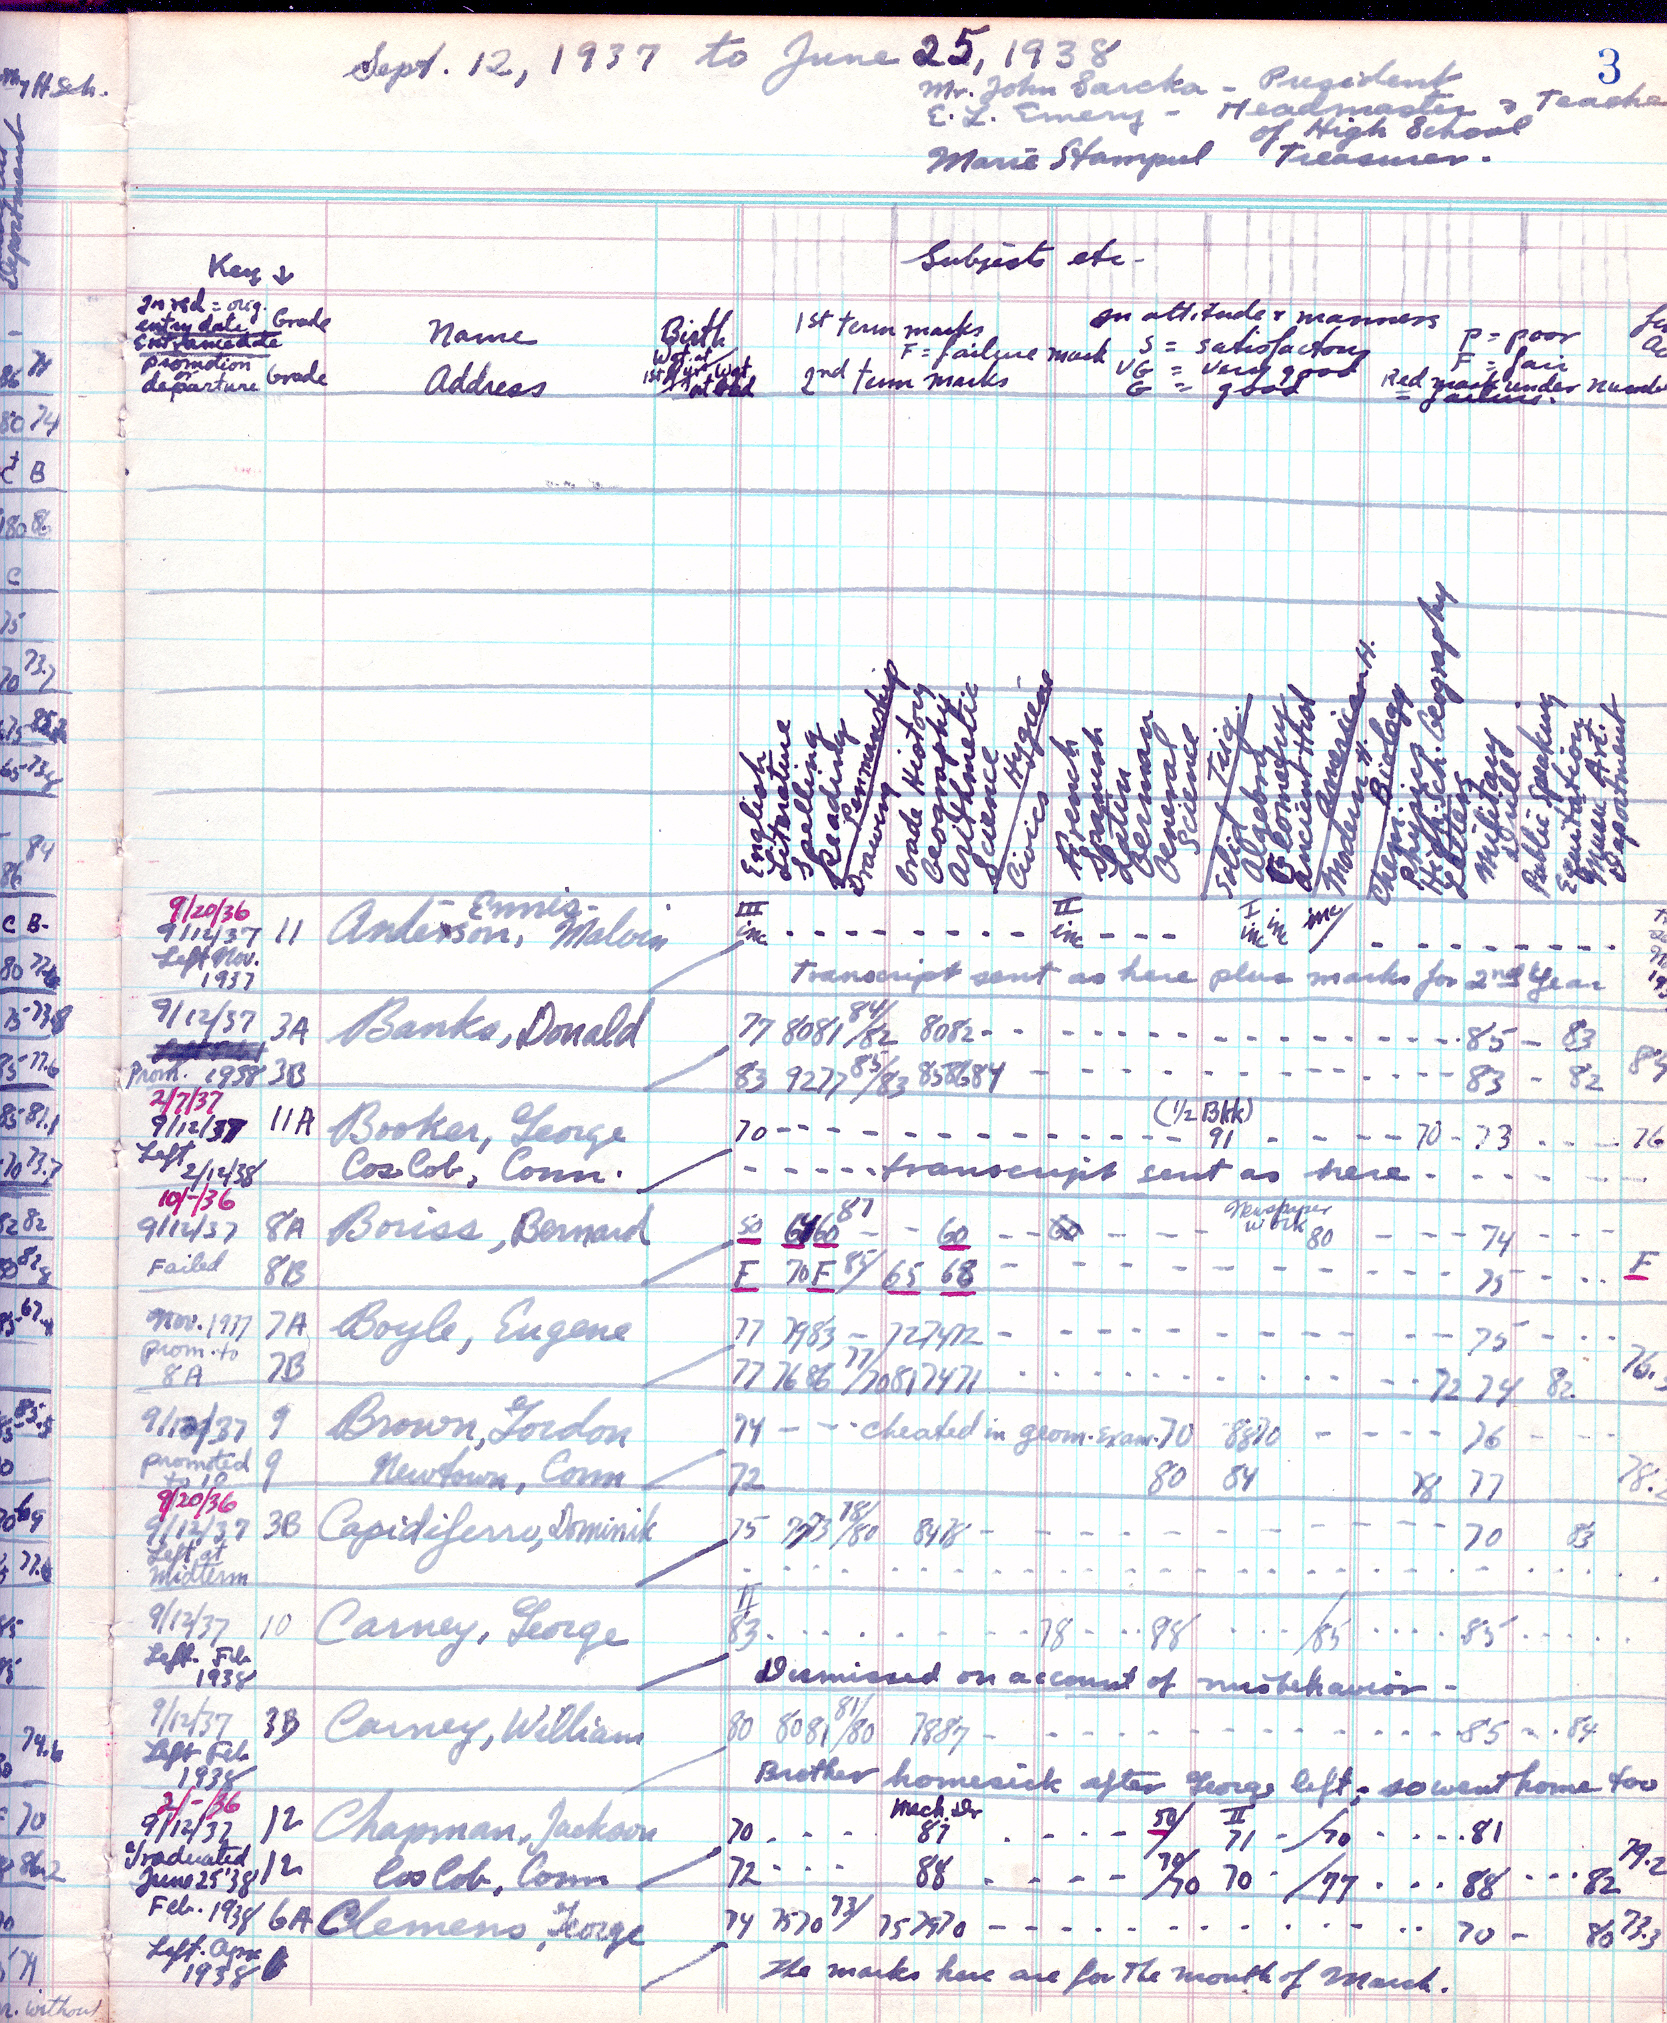 Sept. 12, 1937 to June 25, 1938
3
Mr. John Sarcka - President
E. L. Emery - Headmaster & Teacher
of High School
Marie Stampul Treasurer.
H. Sch.
Department
Subjects etc.
Key ↓
In red = orig.
entry date Grade
Entrance date
promotion
or
departure Grade
Name
Address
Birth
Wgt. at
1st term marks
F = failure mark
2nd term marks
In attitude & manners
S = satisfactory
VG = very good
G = good
P = poor
F = fair
Red mark under number
= failure.
English
Literature
Spelling
Reading
Drawing Penmanship
Grade History
Geography
Arithmetic
Science
Civics Hygiene
French
Spanish
Latin
German
General Science
Solid Trig.
Algebra
Geometry
Ancient Hist
Modern H. American H.
Chem. Biology
Physics
High Sch. Geography
Military Drill
Public Speaking
Equitation
Music Art.
Deportment
9/20/36
9/12/37 11 Anderson, Ennis- Malvin III inc II inc I inc inc inc/
Left Nov.
1937 Transcript sent as here plus marks for 2nd Year
9/12/37 3A Banks, Donald 77 80 81 84/82 80 82 - 85 - 83
Prom. 1938 3B 83 92 77 85/83 85 86 84 - 83 - 82
2/7/37
9/12/37 11A Booker, George 70 - (1/2 Bkk) 91 - 70 - 73 - 76
Left
2/12/38 Cos Cob, Conn. transcript sent as here
10/-/36
9/12/37 8A Boriss, Bernard 50 64 60 87 - - 60 - Newspaper work 80 - 74
Failed 8B F 70 F 85/ 65 68 - 75 - F
Nov. 1937 7A Boyle, Eugene 77 79 83 - 72 74 72 - 75
prom. to
8A 7B 77 76 86 77/70 81 74 71 72 74 82
9/12/37 9 Brown, Gordon 74 - - cheated in geom. exam. 70 88 70 - 76
promoted
to 10 9 Newtown, Conn 72 80 84 78 77 78.2
9/20/36
9/12/37 3B Capidiferro, Dominik 75 77 73 78/80 84 78 - 70 83
Left at
midterm
9/12/37 10 Carney, George II 83 78 98 /85 85
Left. Feb
1938 Dismissed on account of misbehavior -
9/12/37 3B Carney, William 80 80 81 81/80 78 87 - 85 - 84
Left Feb
1938 Brother homesick after George left; so went home too
2/-/36
9/12/37 12 Chapman, Jackson 70 Mech. Dr 87 50/ II 71 - /70 81
Graduated
June 25 '38 12 Cos Cob, Conn 72 88 70/70 70 /77 88 82 79.2
Feb. 1938 6A Clemens, George 74 75 70 73/ 75 79 70 - 70 - 80 73.3
Left. Apr.
1938 The marks here are for the month of March.